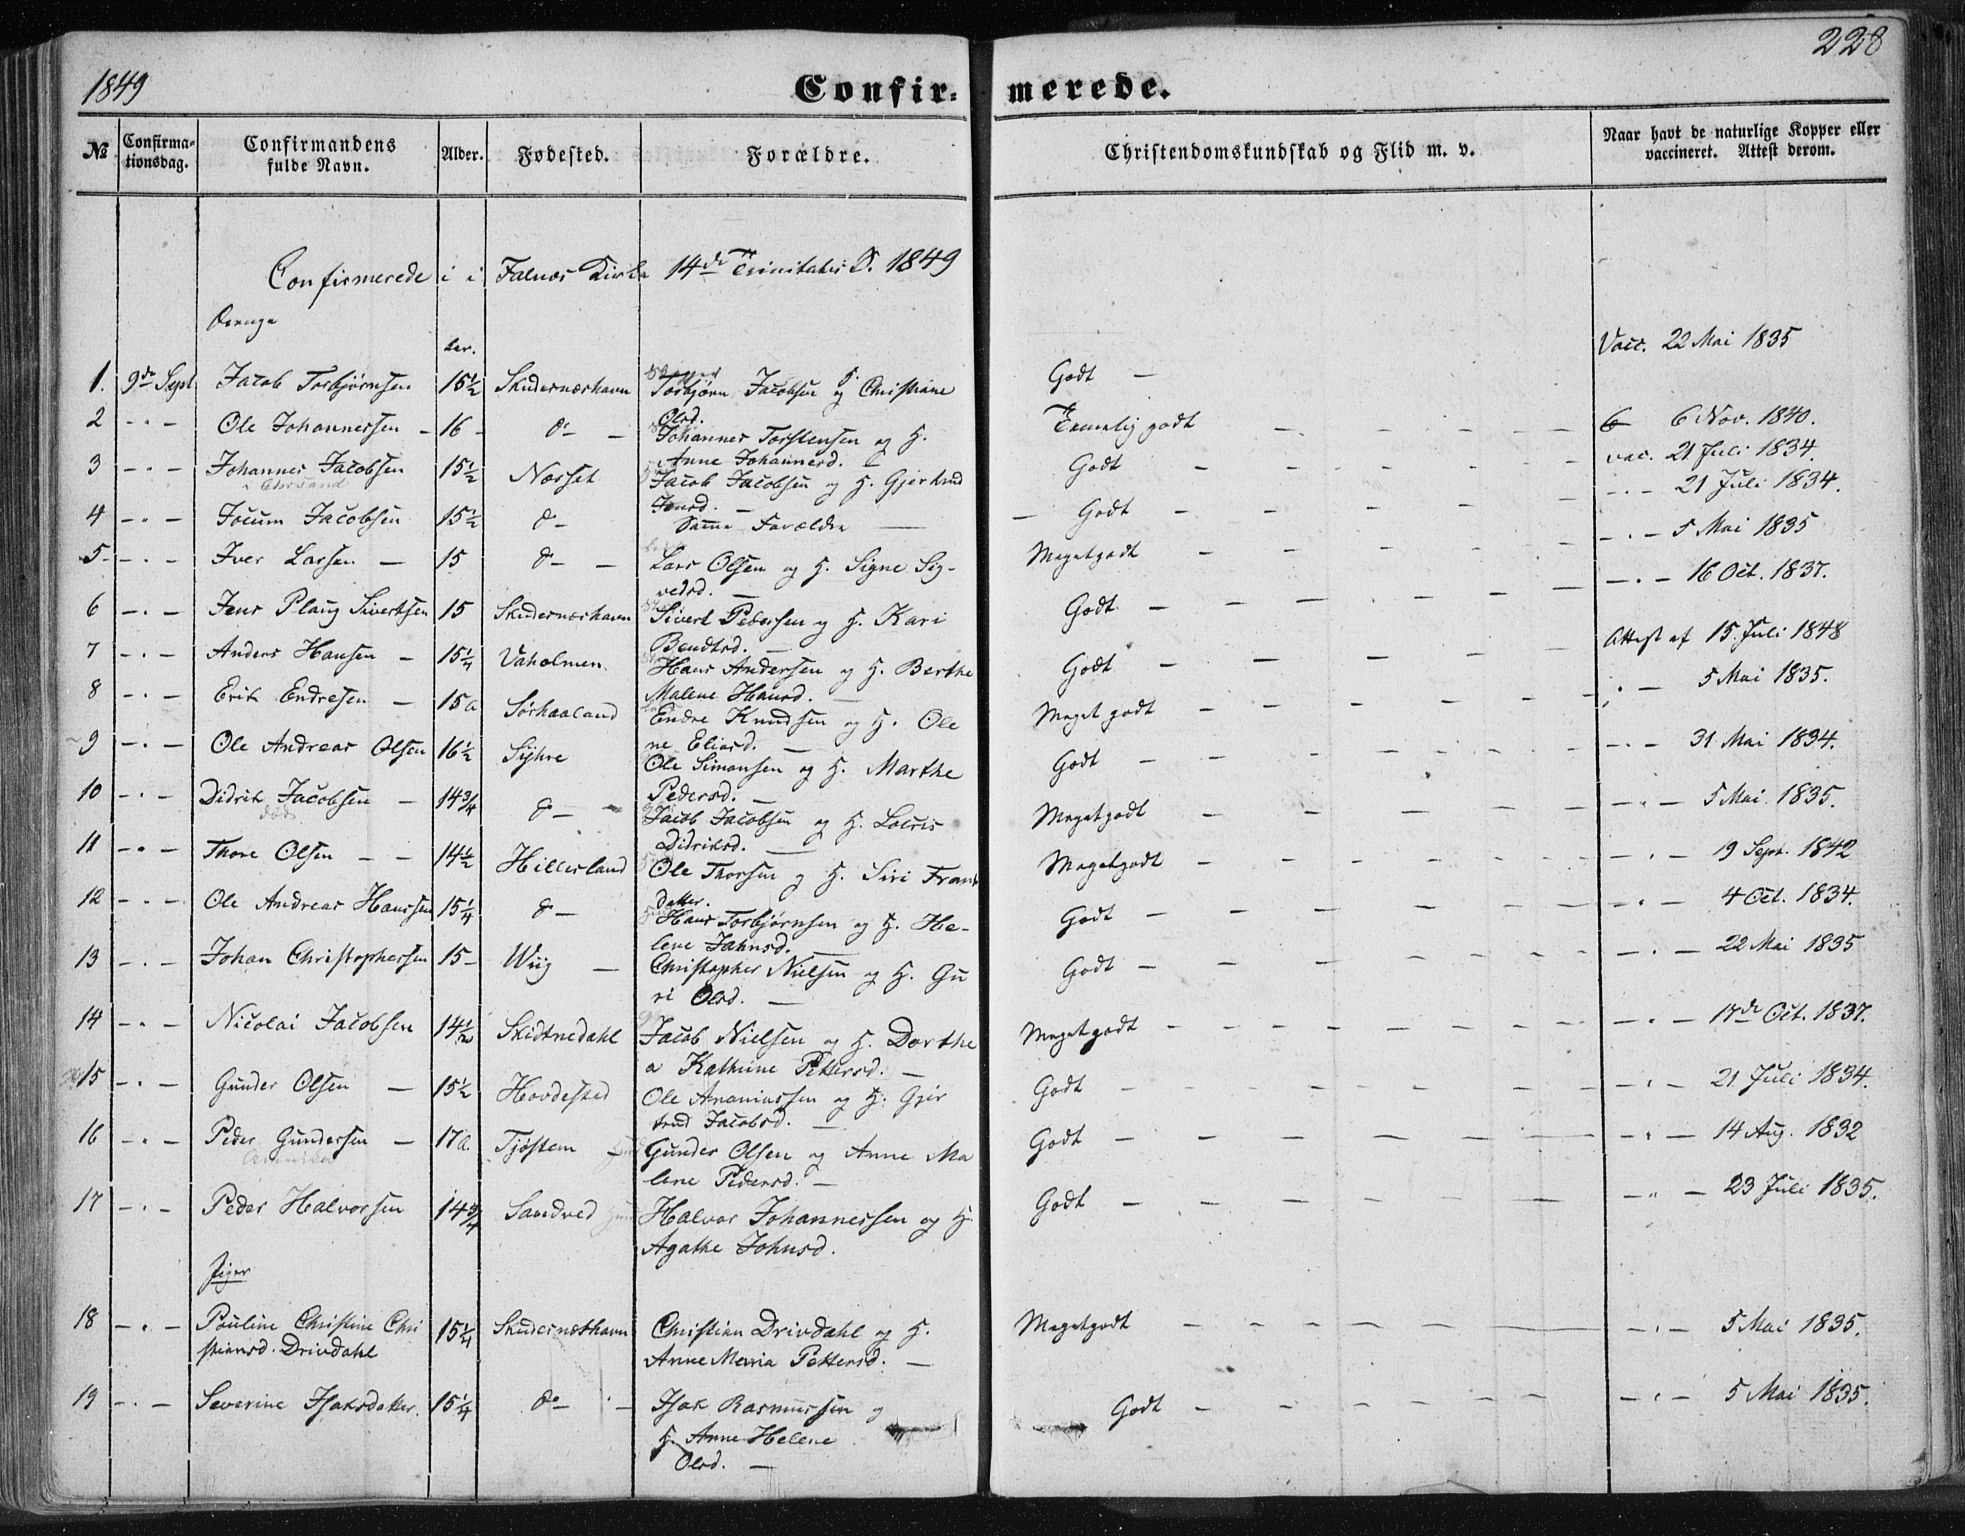 1849
228
Confir-merede.
№ Confirma-tionsdag. Confirmandens fulde Navn. Alder. Fødested. Forældre. Christendomskundskab og Flid m. v. Naar havt de naturlige Kopper eller vaccineret. Attest derom.
Confirmerede i i Falnæs Kirke 14de Trinitatis S. 1849
Drenge
Vacc. 22 Mai 1835
1. 9de Sept Jacob Torbjørnsen 15½ Skudernæshavn Torbjørn Jacobsen og Christiane Godt —
Olsd.
2 — " — Ole Johannessen — 16 — do — Johannes Torstensen og H. Temelig godt 6 6 Nov. 1840.
Anne Johannesd.
3 — " — Johannes Jacobsen 15½ Næsset Jacob Jacobsen og H. Gjertrud Godt vac. 21 Juli 1834.
Jensd. —
4 — " — Jocum Jacobsen 15½ do — Samme Forældre — Godt — " — 21 Juli 1834.
5 — " — Iver Larsen — 15 do — Lars Olsen og H. Signe Sig- Megetgodt — " — 5 Mai 1835
vedsd. —
6 — " — Jens Plaug Sivertsen 15 Skudernæshavn Sivert Pedersen og H. Kari Godt — " — 16 Oct. 1837.
Bendtsd. —
7 — " — Anders Hansen — 15¼ Vaholmen Hans Andersen og H. Berthe Godt Attest af 15 Juli 1848
Malene Hansd. —
8 — " — Erik Endresen — 15 a Sørhaaland Endre Knudsen og H. Ole Meget godt " — 5 Mai 1835.
ne Eliasd. —
9 — " — Ole Andreas Olsen 16½ Syhre Ole Simonsen og H. Marthe Godt — " — 31 Mai 1834.
Pedersd. —
10 — " — Didrik Jacobsen — 14¾ do — Jacob Jacobsen og H. Lovis Megetgodt — " — 5 Mai 1835.
død
Didriksd. —
11 — " — Thore Olsen — — 14½ Hillesland Ole Thorsen og H. Siri Frants Megetgodt — " — 19 Sept. 1842
datter.
12 — " — Ole Andreas Hanssen 15¼ do — Hans Torbjørnsen og H. He- Godt — " — 4 Oct. 1834.
lene Jahnsd. —
13 — " — Johan Christophersen 15 — Wiig — Christopher Nielsen og H. Gu Godt — " — 22 Mai 1835
ri Olsd. —
14 — " — Nicolai Jacobsen 14½ Skidtnedahl Jacob Nielsen og H. Dorthe Megetgodt — " — 17de Oct. 1837.
a Kathrine Pettersd. —
15 — " — Gunder Olsen — 15½ Hovdested Ole Ananiassen og H. Gjer Godt — " — 21 Juli 1834.
trud Jacobsd. —
16 — " — Peder Gundersen — 17 a. Tjøstem Gunder Olsen og Anne Ma Godt — " — 14 Aug. 1832
lene Pedersd. —
17 — " — Peder Halvorsen 14¾ Sandved Halvor Johannessen og H. Godt — " — 23 Juli 1835.
Agathe Johnsd.
Piger
18 — " — Pouline Christine Chri 15¼ Skudernæshavn Christian Drivdahl og H. Megetgodt — " — 5 Mai 1835.
stiansd. Drivdahl Anne Maria Pettersd. —
19 — " — Severine Isaksdatter. 15¼ do — Isak Rasmussen og Godt — " — 5 Mai 1835.
H. Anne Helene
Olsd. —